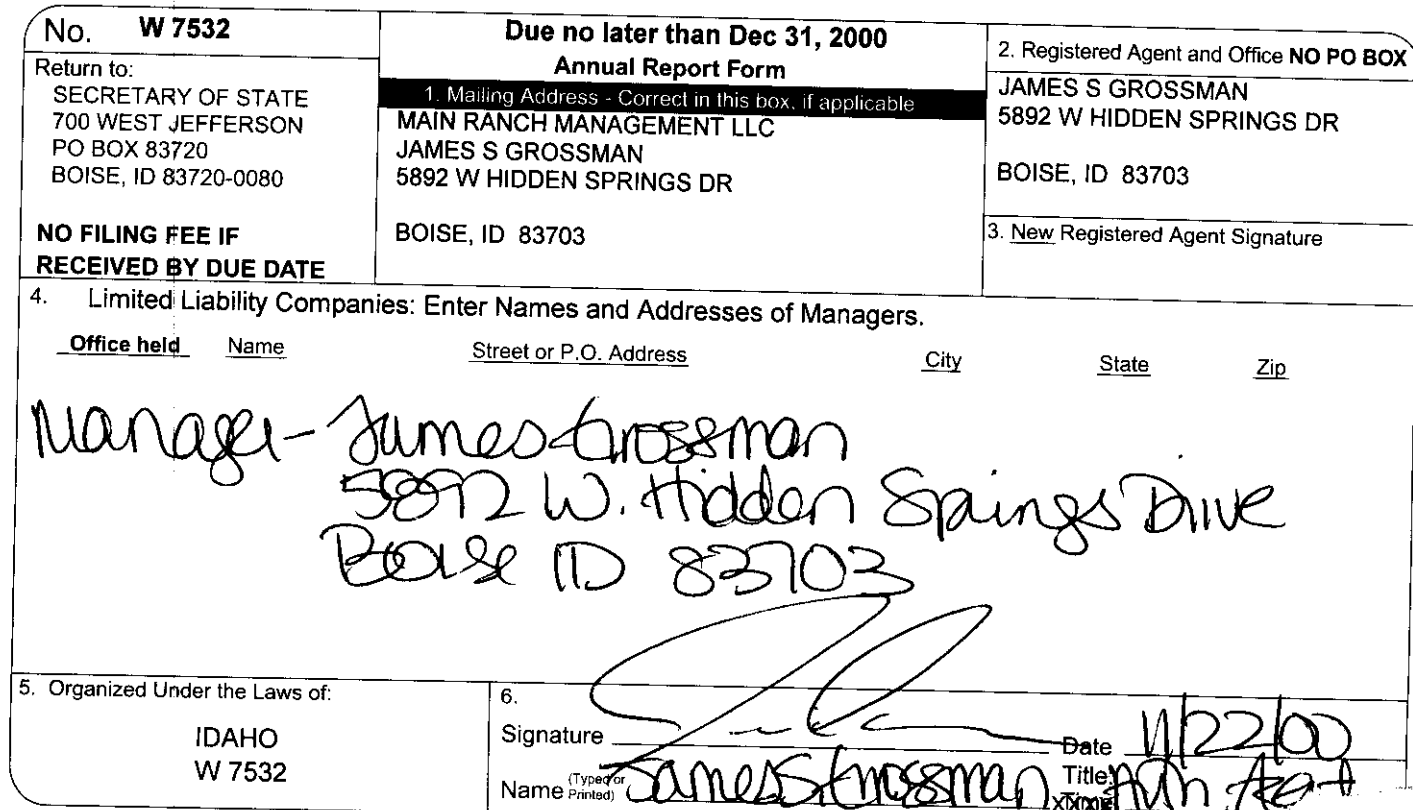 No. W 7532
Return to:
SECRETARY OF STATE
700 WEST JEFFERSON
PO BOX 83720
BOISE, ID 83720-0080
NO FILING FEE IF
RECEIVED BY DUE DATE
Due no later than Dec 31, 2000
Annual Report Form
1. Mailing Address - Correct in this box, if applicable
MAIN RANCH MANAGEMENT LLC
JAMES S GROSSMAN
5892 W HIDDEN SPRINGS DR
BOISE, ID 83703
2. Registered Agent and Office NO PO BOX
JAMES S GROSSMAN
5892 W HIDDEN SPRINGS DR
BOISE, ID 83703
3. New Registered Agent Signature
4. Limited Liability Companies: Enter Names and Addresses of Managers.
Office held Name Street or P.O. Address City State Zip
Manager- James Grossman
5892 W. Hidden Springs Drive
Boise ID 83703
5. Organized Under the Laws of:
IDAHO
W 7532
6.
Signature Date 11/22/00
Name (Typed or Printed) James S. Grossman Title: Auth Agent